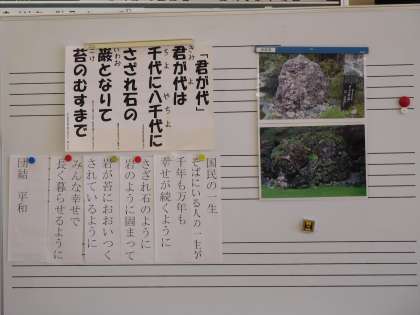 「君が代」
君が代は
千代に八千代に
さざれ石の
巌となりて
苔のむすまで
きみ　よ
ちよ　やちよ
いわお
こけ
国民の一生
そばにいる人の一生が
千年も万年も
幸せが続くように
さざれ石のように
岩のように固まって
岩が苔におおいつく
されているように
みんな幸せで
長く暮らせるように
団結　平和